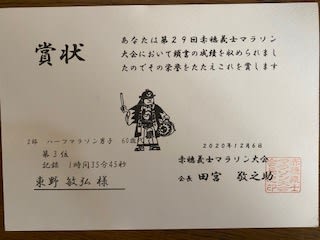 賞状
あなたは第29回赤穂義士マラソン
大会において頭書の成績を収められまし
たのでその栄誉をたたえこれを賞します
2部 ハーフマラソン男子 60歳
第3位
記録 1時間35分45秒
東野 敏弘 様
2020年12月6日
赤穂義士マラソン大会
会長 田宮 敬之助